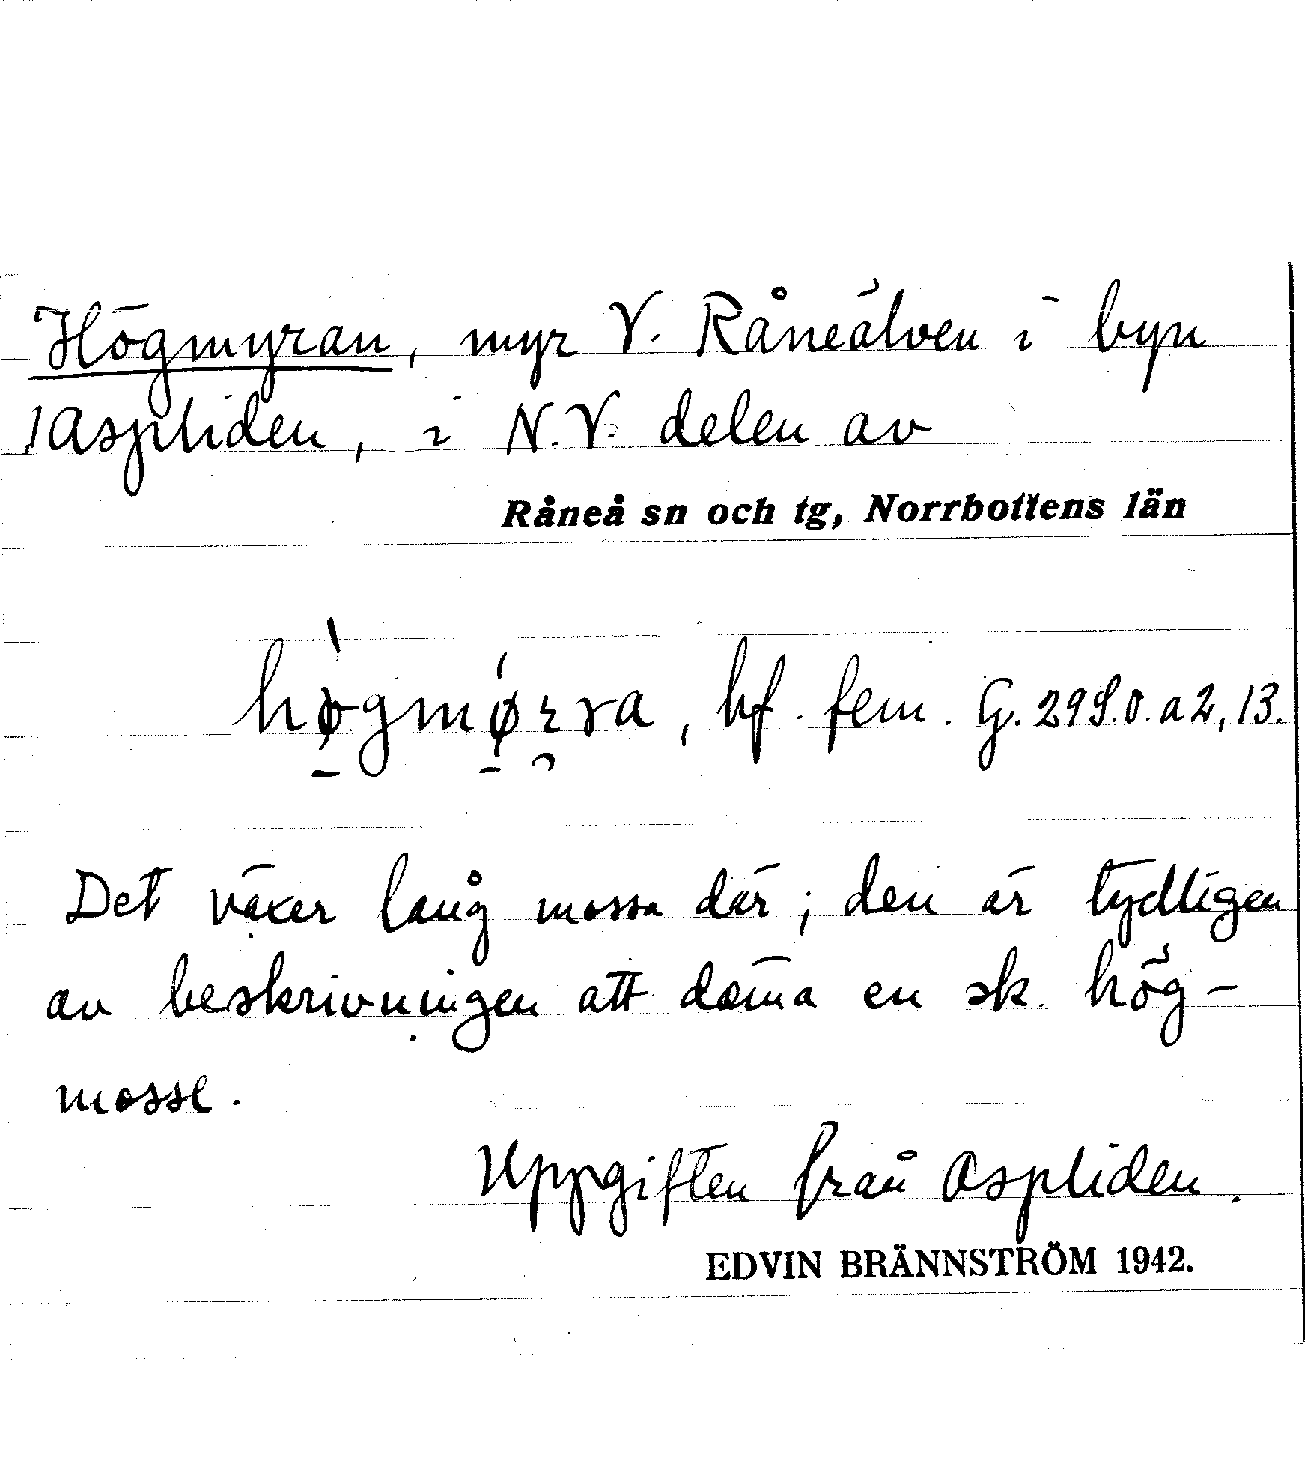 Högmyran, myr V. Råneälven i byn
Aspliden, i N.V. delen av
Råneå sn och tg, Norrbottens län
hø̀gmǿrra, bf. fem. G. 298.0. a 2, 13.
Det växer lång mossa där; den är tydligen
av beskrivningen att döma en sk. hög-
mosse.
Uppgiften från Aspliden.
EDVIN BRÄNNSTRÖM 1942.